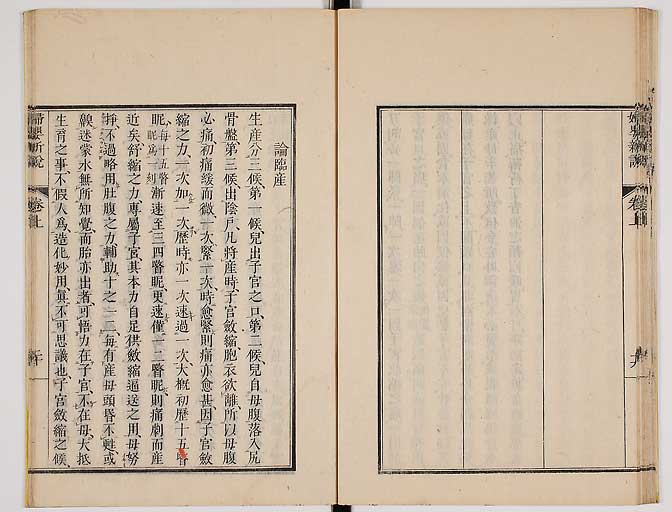 婦嬰新說
卷上
論臨產
生產分三候、第一候兒出子宮之口、第二候兒自母腹落入尻
骨盤、第三候出陰戶、凡將產時、子宮斂縮、胞衣欲離、所以母腹
必痛、初痛緩而微、一次緊一次、時愈緊則痛亦愈甚、因子宮斂
縮之力、一次加一次、歷時亦一次速過一次、大概初歷十五瞥
眤、每十五瞥眤爲一刻漸速至三四瞥眤、更速僅一二瞥眤、則痛劇而產
近矣、舒縮之力、專屬子宮、其本力自足供斂縮逼送之用、母努
掙不過略用肚腹之力、輔助十之一二、每有產母頭昏不甦、或
躲迷蒙水、無所知覺、而胎亦出者、可悟力在子宮、不在母、大抵
生育之事、不假人爲、造化妙用、眞不可思議也、子宮斂縮之候、
婦嬰新說
卷上